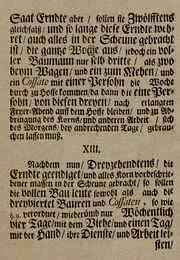 Saat Erndte aber / sollen sie Zwölfftens
gleichfals / und so lange diese Erndte weh-
ret / auch alles in der Scheune gebracht
ist / die gantze Woche aus / jedoch ein vol-
ler Baumann nur selb dritte / als zwo
beym Wagen / und ein zum Mehen / und
ein Cossate mit einer Persohn die Woche
durch zu Hofe kommen da dann die eine Per-
sohn / von diesen dreyen / nach erlangten
Feyer-Abend auff dem Hofe bleiben / und zu Ab-
bringung des Kornes / und anderer Arbeit / sich
des Morgens / bey andrechenden Tage / gebrau-
chen lassen muß.
XIII.
Nachdem nun / Dreyzehendtens / die
Erndte geendiget / und alles Korn vorbeschrie-
bener massen in der Scheune gebracht / so sollen
die vollen Bau-leute sowohl als auch die
dreyviertel Bauren und Cossaten, so wie
verordnet / wiederumb nur Wöchentlich
vier Tage / mit dem Viehe / und einen Tag /
mit der Hand / ihre Dienste / und Arbeit lei-
sten /